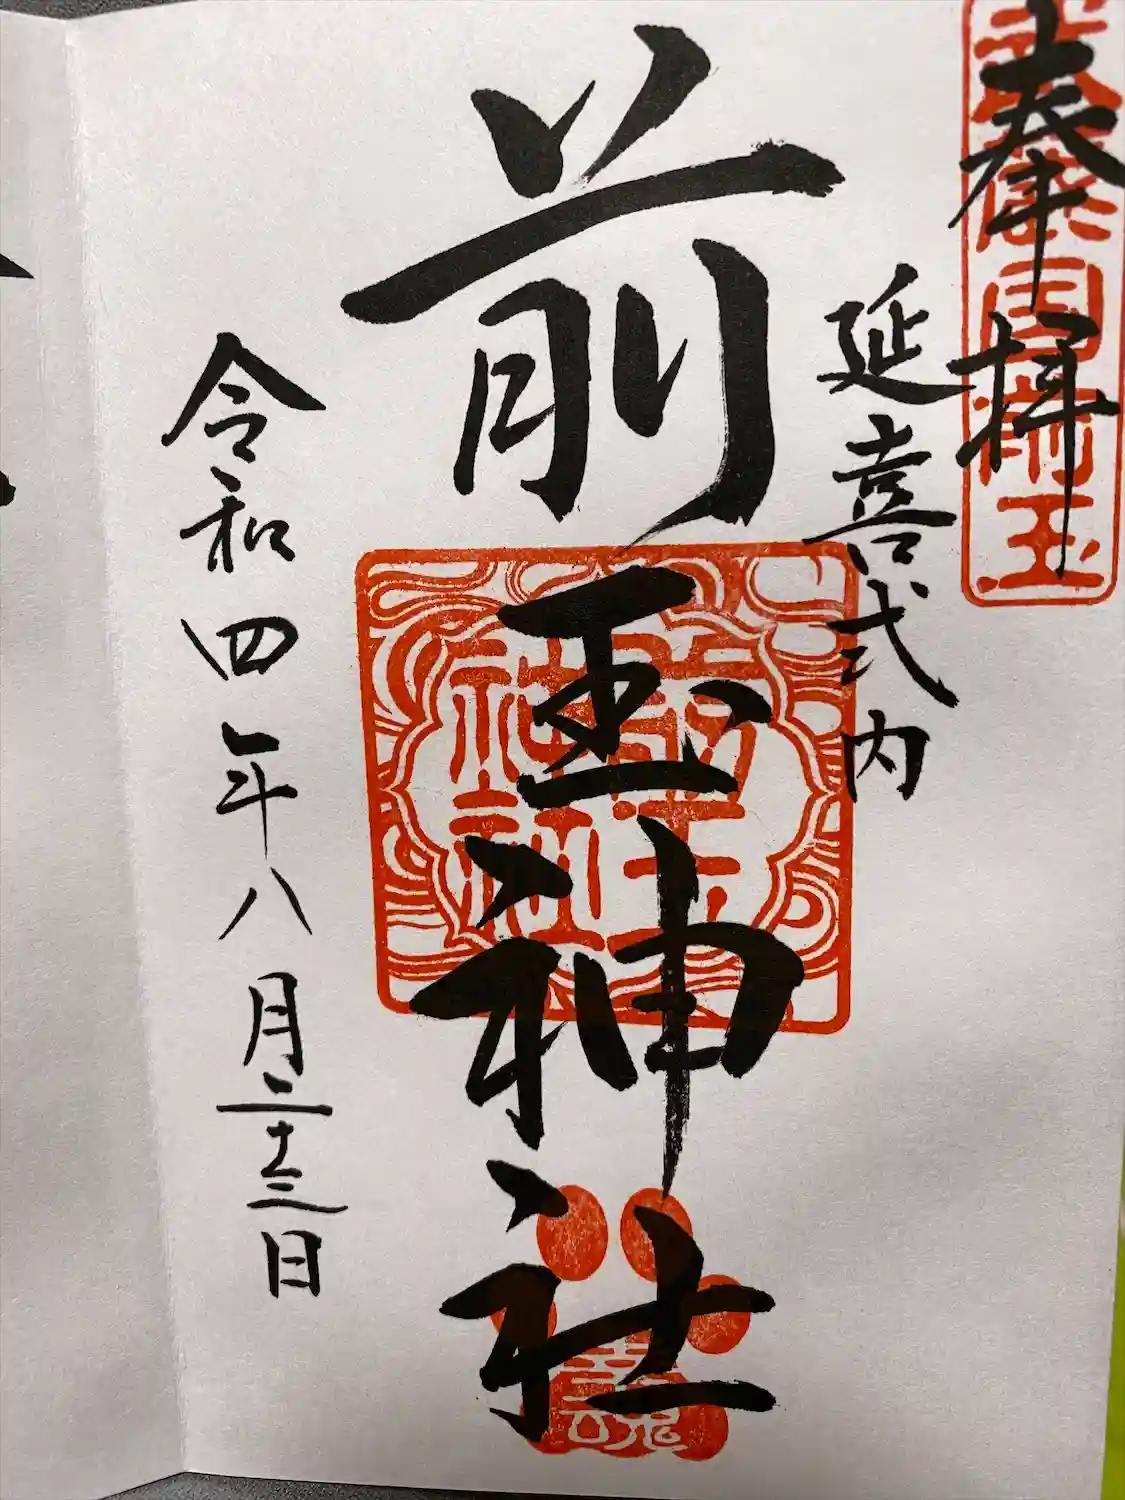 奉拝
武蔵国前玉
延喜式内
前玉神社
前玉神社
令和四年八月二十三日